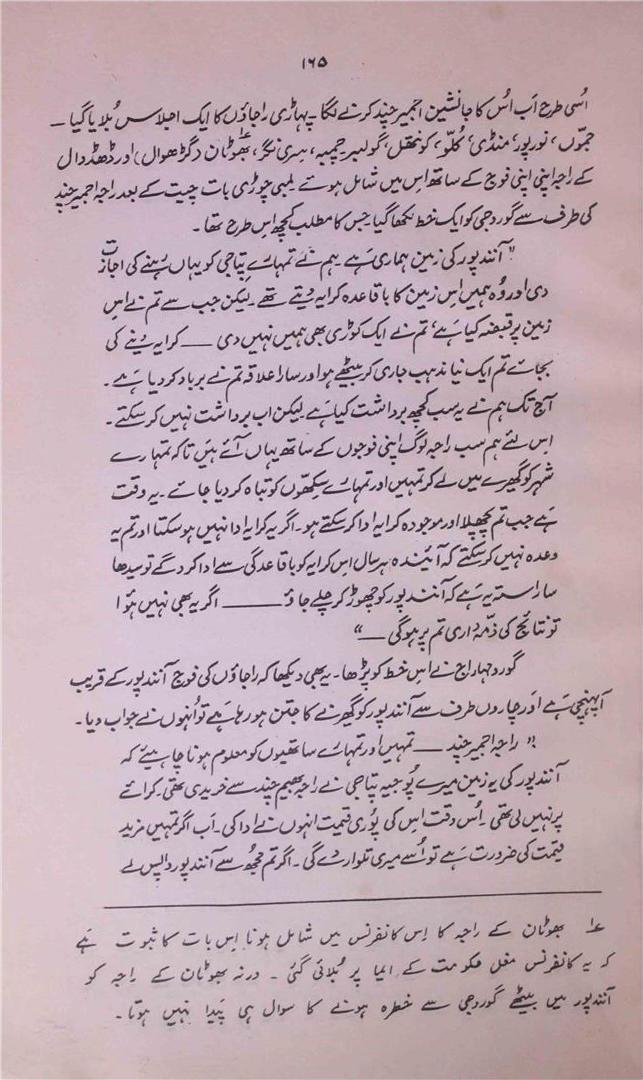 ۱۶۵
اُسی طرح اَب اُس کا جانشین اجمیر چند کرنے لگا ۔ پہاڑی راجاؤں کا ایک اجلاس بُلایا گیا ۔
جموّں، نورپور، منڈی، کُلّو، کونتھل، گولیر، چمبہ، سری نگر، بھوٹان ؎۱ (گڑھوال) اور ڈھڈوال
کے راجہ اپنی اپنی فوج کے ساتھ اس میں شامل ہوئے ۔ لمبی چوڑی بات چیت کے بعد راجہ اجمیر چند
کی طرف سے گوروجی کو ایک خط لکھا گیا جس کا مطلب کچھ اِس طرح تھا ۔
" آنندپور کی زمین ہماری ہے ۔ ہم نے تمہارے پتاجی کو یہاں رہنے کی اجازت
دی اور وُہ ہمیں اِس زمین کا باقاعدہ کرایہ دیتے تھے ۔ لیکن جب سے تم نے اِس
زمین پر قبضہ کیا ہے، تم نے ایک کوڑی بھی ہمیں نہیں دی ــــ کرایہ دینے کی
بجائے تم ایک نیا مذہب جاری کر بیٹھے ہو اور سارا علاقہ تم نے برباد کر دیا ہے ۔
آج تک ہم نے یہ سب کچھ برداشت کیا ہے لیکن اب برداشت نہیں کر سکتے ۔
اس لئے ہم سب راجہ لوگ اپنی فوجوں کے ساتھ یہاں آئے ہیں تاکہ تمہارے
شہر کو گھیرے میں لے کر تمہیں اور تمہارے سکھّوں کو تباہ کر دیا جائے ۔ یہ وقت
ہے جب تم پچھلا اور موجودہ کرایہ ادا کر سکتے ہو ۔ اگر یہ کرایہ ادا نہیں ہو سکتا اور تم یہ
وعدہ نہیں کر سکتے کہ آئیندہ ہر سال اس کرایہ کو باقاعدگی سے ادا کرو گے تو سیدھا
سا راستہ یہ ہے کہ آنندپور کو چھوڑ کر چلے جاؤ ــــــ اگر یہ بھی نہیں ہُوا
تو نتائج کی ذمّہ داری تم پر ہو گی ــــ "
گورو مہاراج نے اِس خط کو پڑھا ۔ یہ بھی دیکھا کہ راجاؤں کی فوج آنندپور کے قریب
آپہنچی ہے اور چاروں طرف سے آنندپور کو گھیرنے کا جتن ہو رہا ہے تو اُنہوں نے جواب دیا ۔
" راجہ اجمیر چند ــــ تمہیں اور تمہارے ساتھیوں کو معلوم ہونا چاہیئے کہ
آنندپور کی یہ زمین میرے پُوجیہ پتاجی نے راجہ بھیم چند سے خریدی تھی ۔ کرائے
پر نہیں لی تھی ۔ اُس وقت اِس کی پُوری قیمت انہوں نے ادا کی ۔ اَب اگر تمہیں مزید
قیمت کی ضرورت ہے تو اُسے میری تلوار دے گی ۔ اگر تم مجھ سے آنندپور واپس لے
؎۱ بھوٹان کے راجہ کا اِس کانفرنس میں شامل ہونا اِس بات کا ثبوت ہے
کہ یہ کانفرنس مغل حکومت کے ایما پر بُلائی گئی ۔ ورنہ بھوٹان کے راجہ کو
آنندپور میں بیٹھے گوروجی سے خطرہ ہونے کا سوال ہی پَیدا نہیں ہوتا ۔